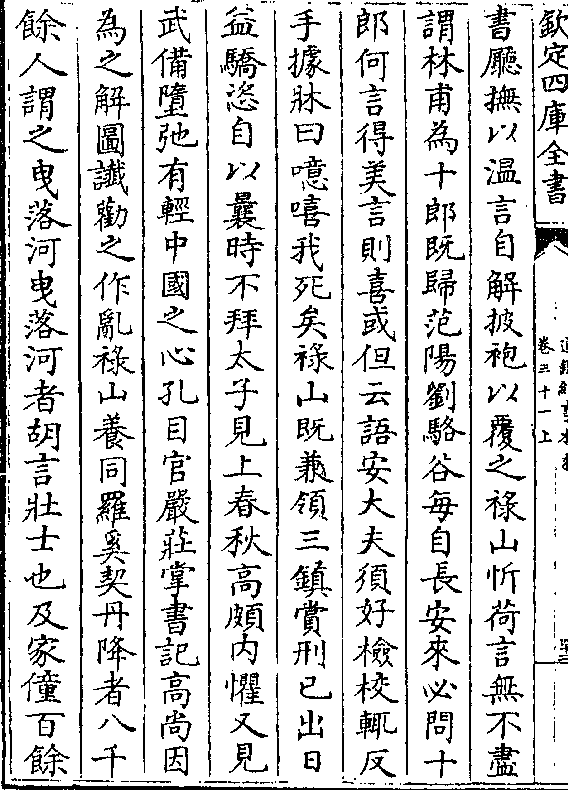 欽定四庫全書
通鑑紀事本末
卷三十一上
書廳撫以温言自解披袍以覆之祿山忻荷言無不盡
謂林甫為十郎既歸范陽劉駱谷每自長安來必問十
郎何言得美言則喜或但云語安大夫須好檢校輒反
手據牀曰噫嘻我死矣祿山既兼領三鎮賞刑已出日
益驕恣自以曩時不拜太子見上春秋高頗内懼又見
武備墮弛有輕中國之心孔目官嚴莊掌書記高尚因
為之解圖讖勸之作亂祿山養同羅奚契丹降者八千
餘人謂之曳落河曳落河者胡言壯士也及家僮百餘